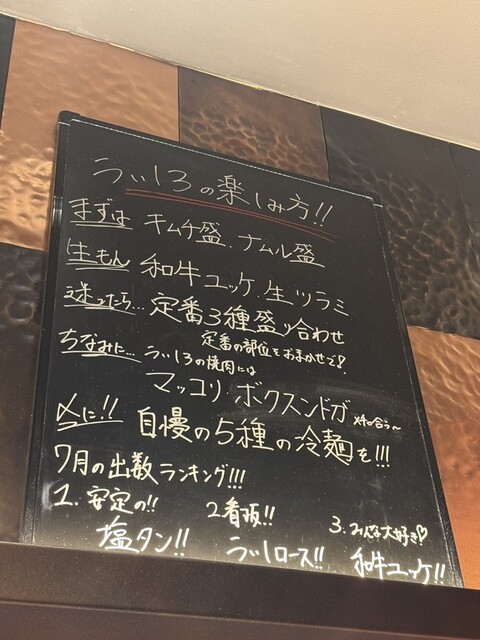 うしろの楽しみ方!!
まずは キムチ盛、ナムル盛
生もん 和牛ユッケ、生ツラミ
迷ったら… 定番3種盛り合わせ
定番の部位をおまかせで!
ちなみに… うしろの焼肉には
マッコリ、ボクスンドガ 〆が合う〜
〆に!! 自慢の5種の冷麺を!!!
7月の出数ランキング!!!
1. 安定の!! 2. 看板!! 3. みんな大好き♡
塩タン!! うしロース!! 和牛ユッケ!!